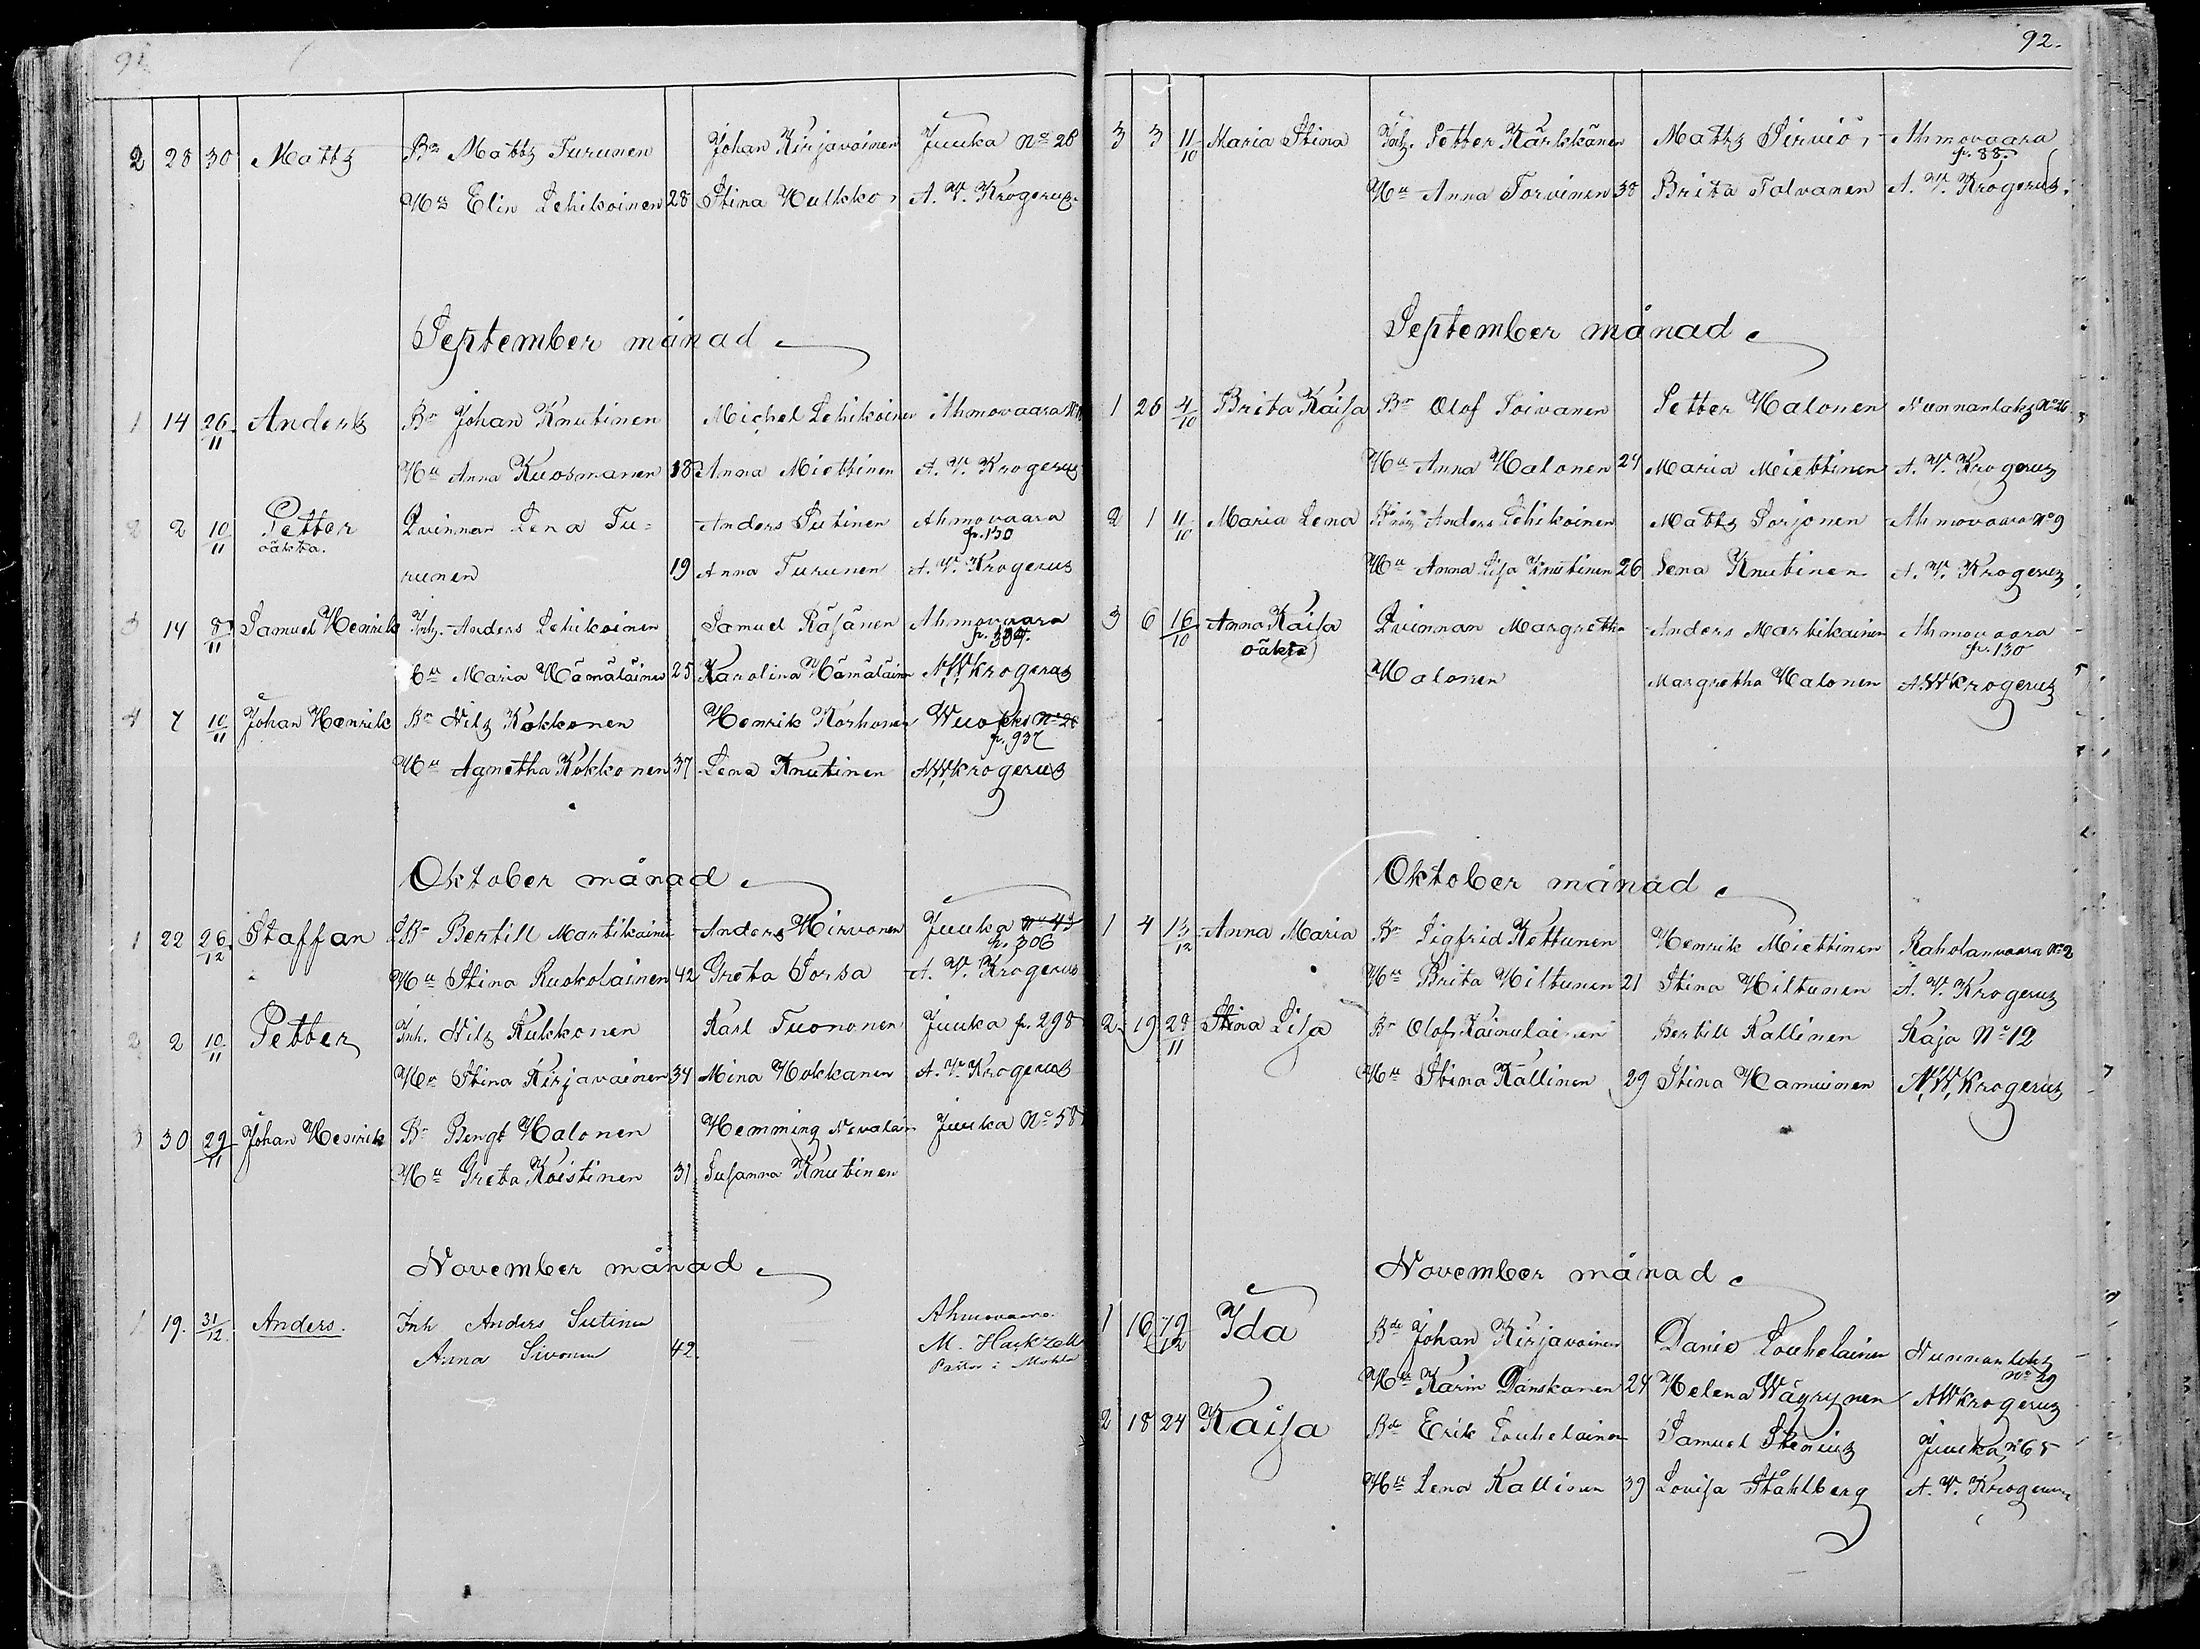 91.
2 28 30 Matts Bn Matts Turunen Johan Kirjavainen Juuka No 28
Hu Elin Lehikoinen 28 Stina Hulkko A. W. Krogerus
September månad
1 14 26/11 Anders Bn Johan Knutinen Michel Lehikoinen Ahmovaara
Hu Anna Kuosmanen 18 Anna Miettinen A. W. Krogerus
2 2 10/11 Petter Qvinnan Lena Tu= Anders Sutinen Ahmovaara
oäkta. p. 130
runen 19 Anna Turunen A. W. Krogerus
3 14 8/11 Samuel Henrik Inh. Anders Lehikoinen Samuel Räsänen Ahmovaara
Hu Maria Hämäläinen 25 Karolina Hämäläinen A W Krogerus
4 7 10/11 Johan Henrik Bn Nils Kokkonen Henrik Korhonen
p. 937
Hu Agnetha Kokkonen 37 Lena Knutinen A W Krogerus
Oktober månad
1 22 26/12 Staffan Bn Bertill Martikainen Anders Hirvonen Juuka No 43
p. 306
Hu Stina Ruokolainen 42 Greta Sorsa A. W. Krogerus
2 2 10/11 Petter Inh. Nils Kukkonen Karl Tuononen Juuka p. 298
Hu Stina Kirjavainen 34 Mina Hokkanen A. W. Krogerus
3 30 29/11 Johan Henrik Bn Bengt Halonen Hemming Nevalain Juuka No 58
Hu Greta Koistinen 31 Susanna Knutinen
November månad
1 19. 31/12 Anders. Inh Anders Sutinen Ahmovaara
Anna Sivonen 42. M. Hackzell
Pastor i Mohla
92.
3 3 11/10 Maria Stina Inh. Petter Kärkkänen Matts Sirviö Ahmovaara
p. 88.
Hu Anna Torvinen 38 Brita Talvanen A. W. Krogerus.
September månad
1 26 4/10 Brita Kaisa Bn Olof Toivanen Petter Halonen Nunnanlaks No 26
Hu Anna Halonen 24 Maria Miettinen A. W. Krogerus
2 1 11/10 Maria Lena Anders Lehikoinen Matts Sorjonen Ahmovaara No 9
Hu Anna Lisa Knutinen 26 Lena Knutinen A. W. Krogerus
3 6 16/10 Anna Kaisa Qvinnan Margretha Anders Martikainen Ahmovaara
oäkta p. 130
Halonen Margretha Halonen A W Krogerus
Oktober månad
1 4 13/12 Anna Maria Bn Sigfrid Kettunen Henrik Miettinen Kaholanvaara No 2
Hu Brita Hiltunen 21 Stina Hiltunen A. W. Krogerus
2 19 29/11 Stina Lisa Bn Olof Kainulainen Bertill Kallinen Kaja No 12
Hu Stina Kallinen 29 Stina Hamunen A. W. Krogerus
November månad
1 16 Ida Bde Johan Kirjavainen Daniel Louhelainen Nunnanlaks
No 29
Hu Karin Danskanen 24 Helena Wäyrynen A W Krogerus
2 18 24 Kaisa Bde Erik Louhelainen Samuel Stenius Juuka, No 65
Hu Lena Kallinen 39 Lovisa Ståhlberg A. W. Krogerus